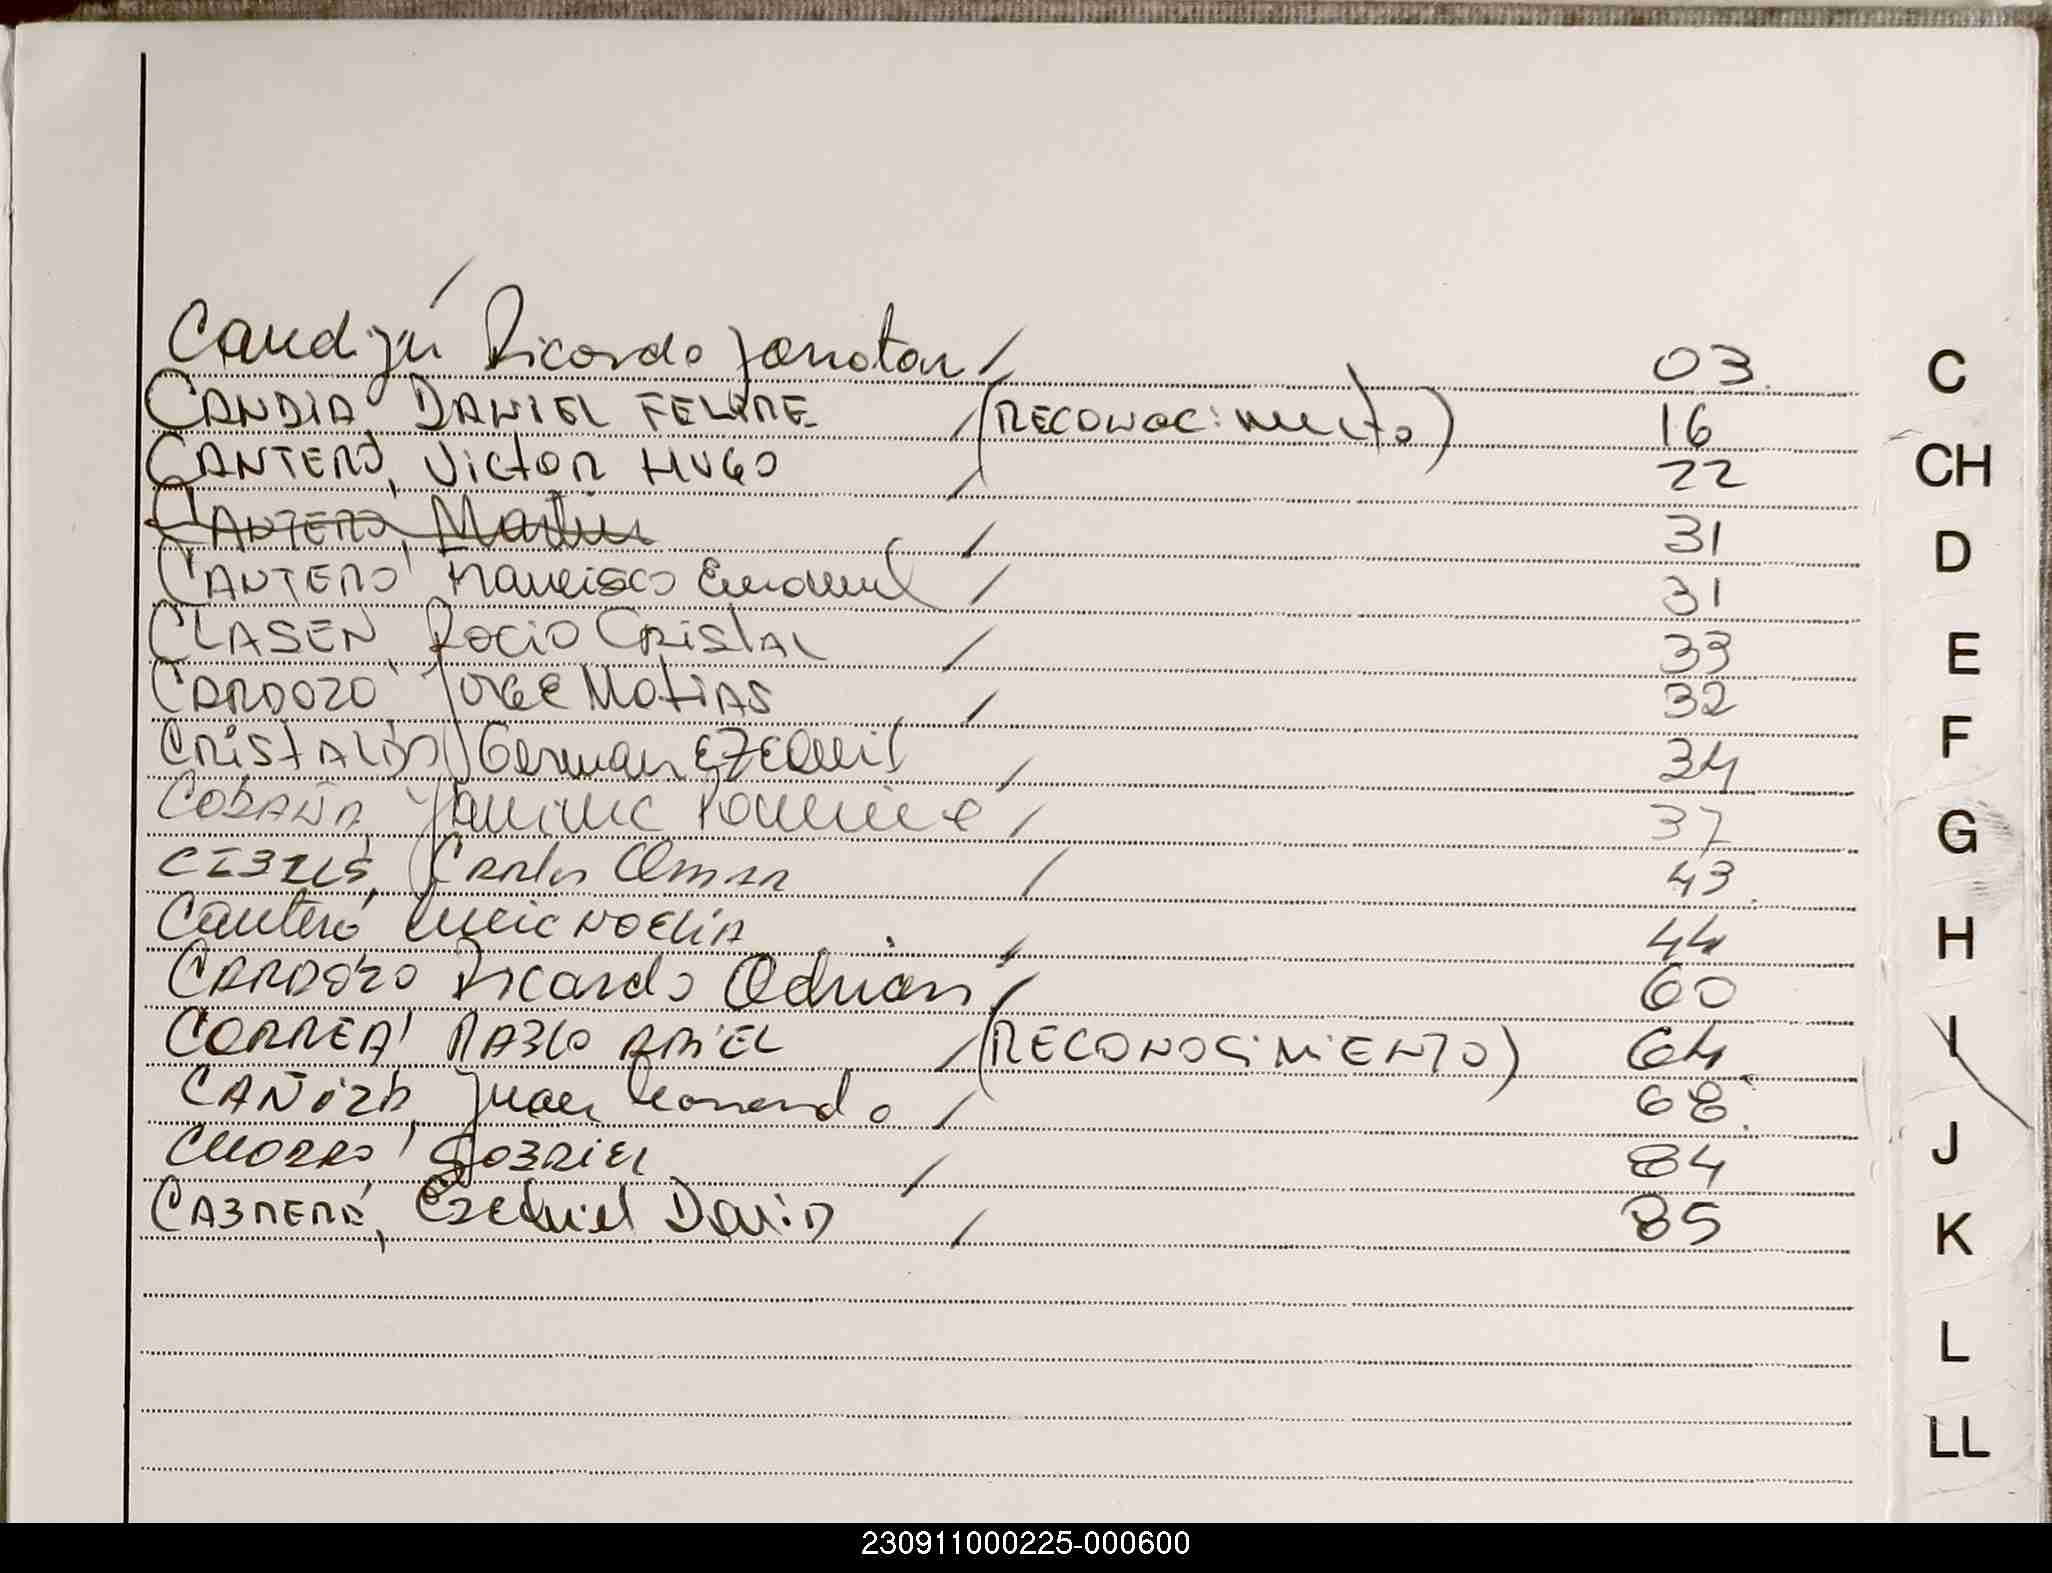 Candiju Ricardo Jonatan / 03
CANDIA, DANIEL FELIPE / (RECONOCimiento) 16
CANTERO, Victor HUGO / 22
CANTERO, Martin / 31
CANTERO Francisco Emanuel / 31
CLASEN, ROCIO CRistAL / 33
CARDOZO JORGE MATIAS / 32
CRISTALDO German EZEQuiel / 34
37
Carlos Omar / 43
Cantero NOELIA / 44
CARDOZO Ricardo Adrian / 60
CORREA PABLO ARiEL / (RECONOSiMiENTO) 64
CAÑiZA, Juan Leonardo / 68
GABRIEL / 84
CABRERA, Ezequiel DaviD / 85
C
CH
D
E
F
G
H
I
J
K
L
LL
230911000225-000600